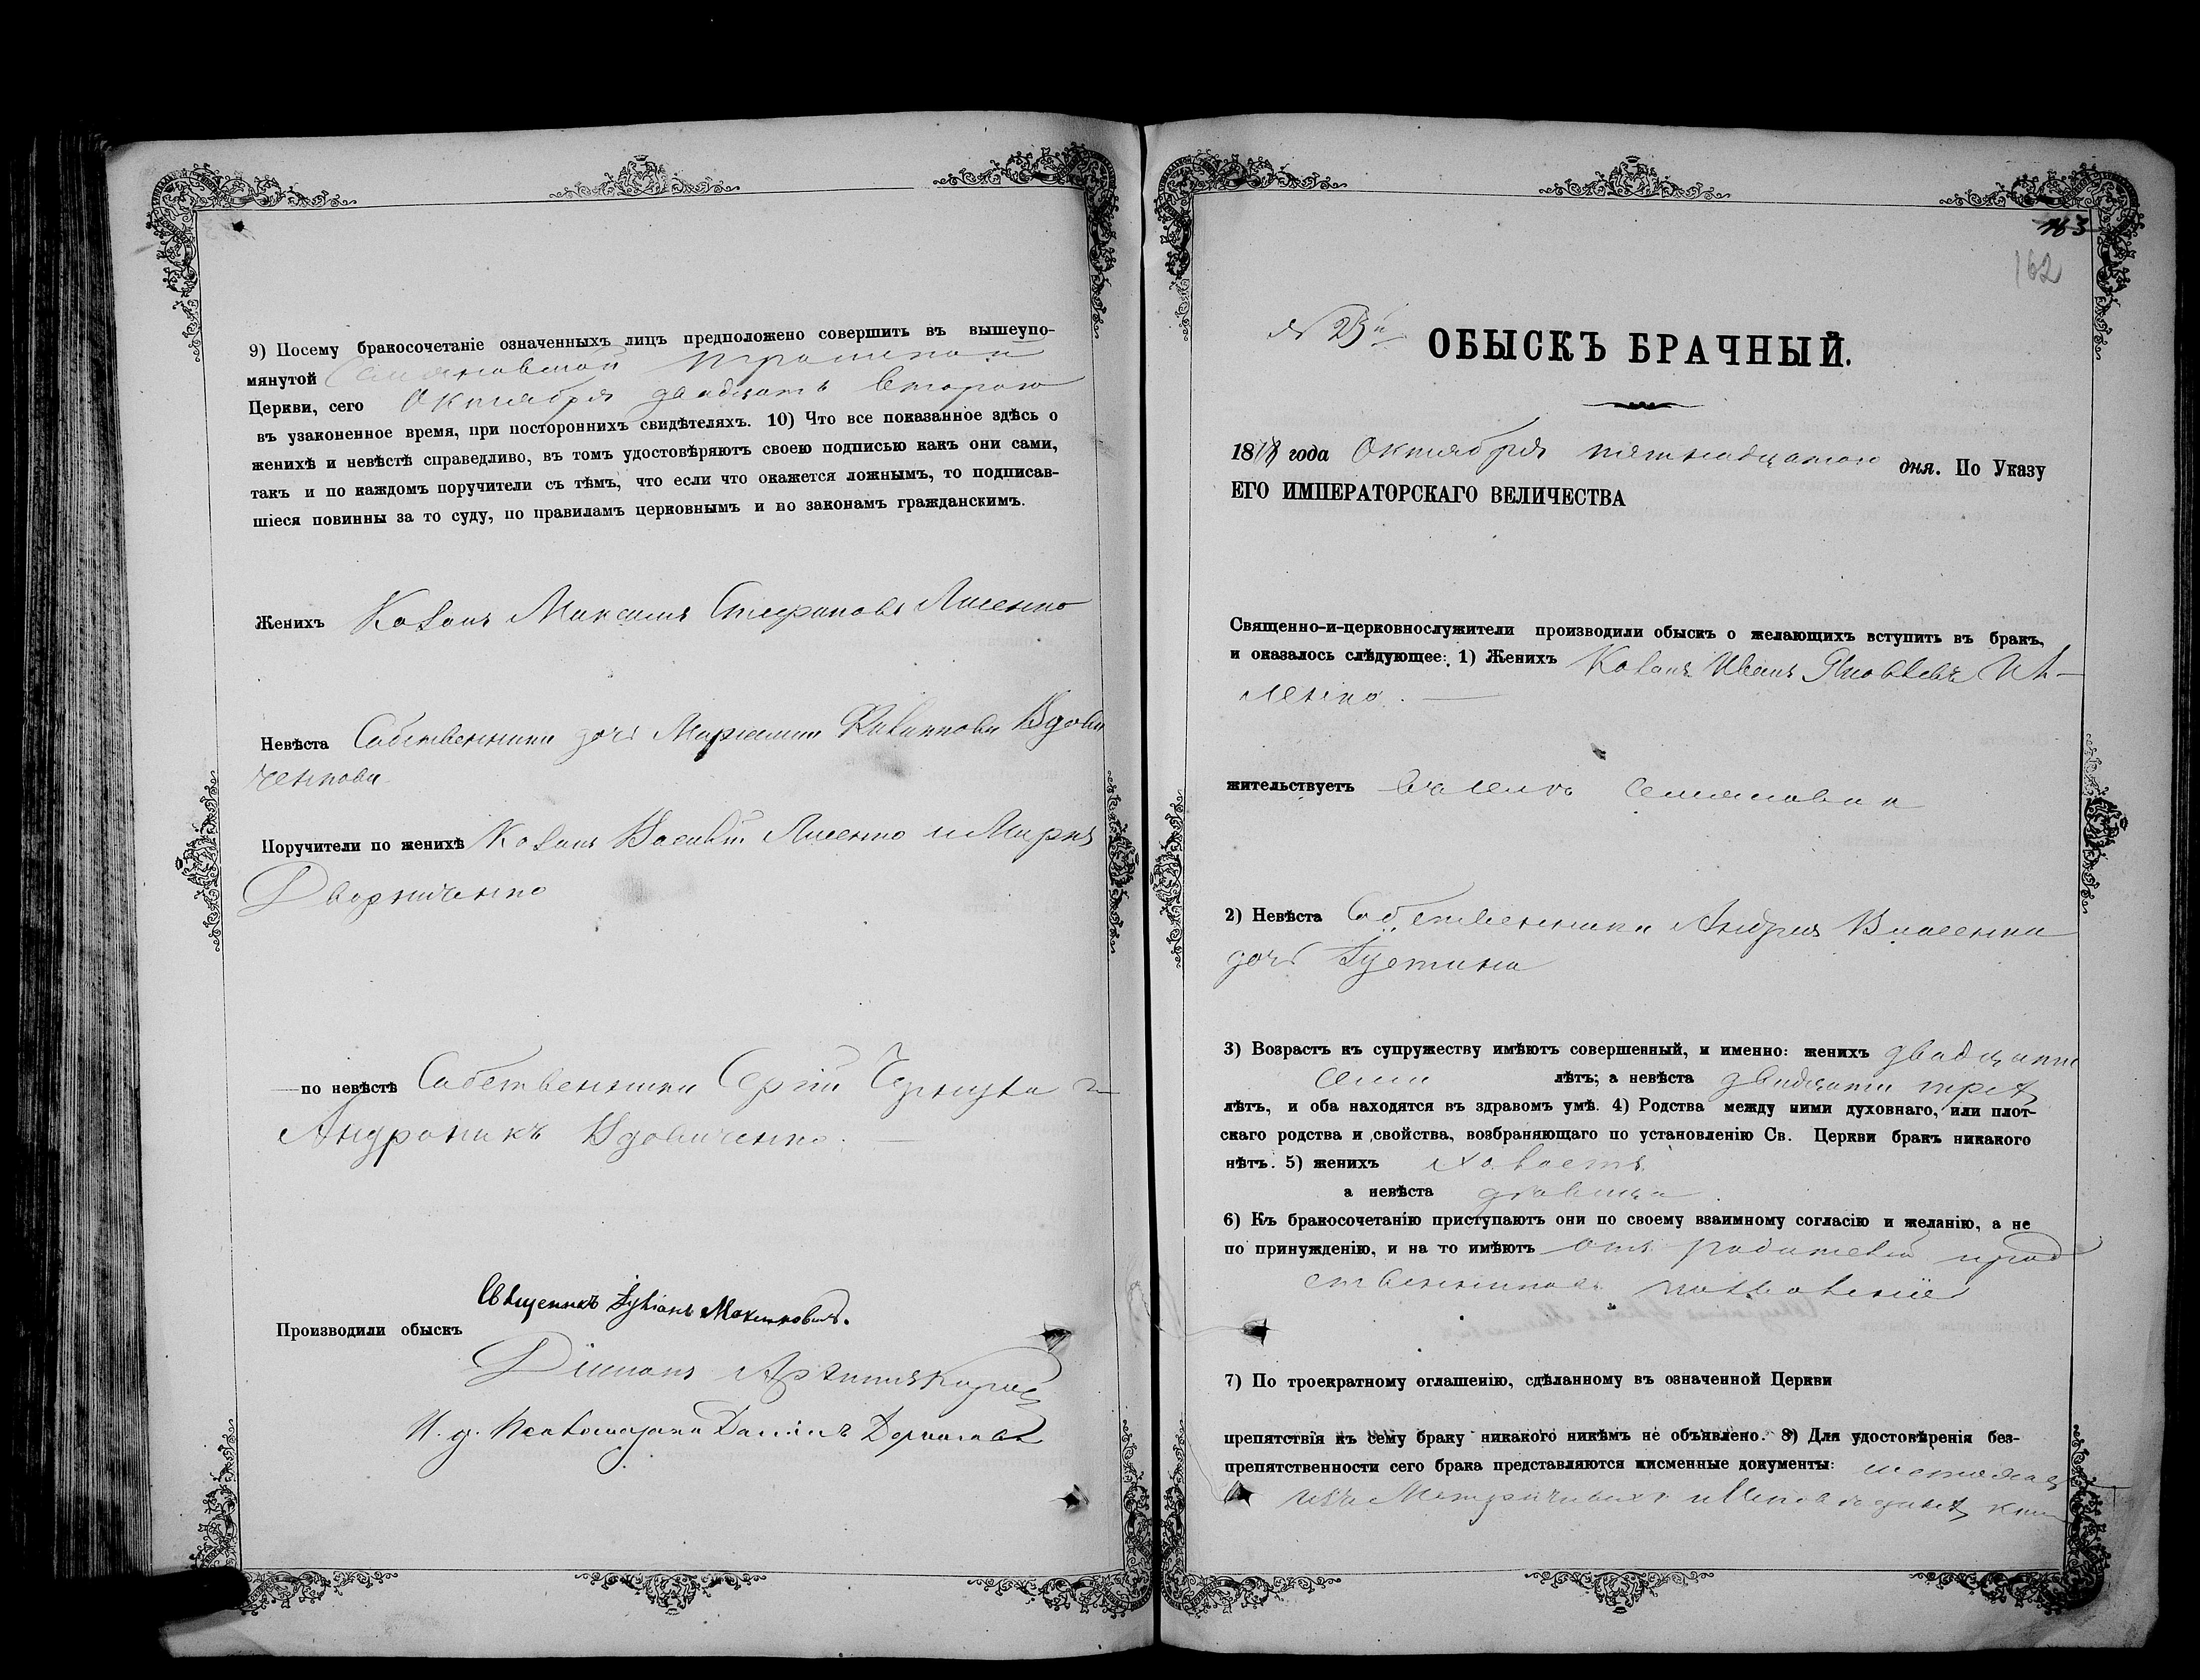 9) Посему бракосочетаніе означенныхъ лицъ предположено совершить въ вышеупо-
мянутой
Церкви, сего Октября двадцать второго
въ узаконенное время, при постороннихъ свидѣтеляхъ. 10) Что все показанное здѣсь о
женихѣ и невѣстѣ справедливо, въ томъ удостовѣряютъ своею подписью какъ они сами,
такъ и по каждомъ поручители съ тѣмъ, что если что окажется ложнымъ, то подписав-
шіеся повинны за то суду, по правиламъ церковнымъ и по законамъ гражданскимъ.
Женихъ Козакъ Максимъ Стефановъ Лисенко
Невѣста Собственника дочь Вдови
ченкова
Поручители по женихѣ Козакъ Василій Лисенко и Маркъ
Дворниченко
по невѣстѣ Собственники Сергій и
Андроникъ Вдовиченко.
Священикъ Максимовичъ.
Производили обыскъ
Діаконъ
И. д. Псаломщика Даніилъ
163
162
№ 23й
ОБЫСКЪ БРАЧНЫЙ.
1878 года Октября пятнадцатого дня. По Указу
ЕГО ИМПЕРАТОРСКАГО ВЕЛИЧЕСТВА
Священно-и-церковнослужители производили обыскъ о желающихъ вступить въ бракъ,
и оказалось слѣдующее: 1) Женихъ Козакъ Иванъ Яковлевъ
жительствуетъ
2) Невѣста Собственника Андрея Власенка
дочь Іустина
3) Возрастъ къ супружеству имѣютъ совершенный, и именно: женихъ двадцати
семи лѣтъ; а невѣста двадцати трехъ
лѣтъ, и оба находятся въ здравомъ умѣ. 4) Родства между ними духовнаго, или плот-
скаго родства и свойства, возбраняющаго по установленію Св. Церкви бракъ никакого
нѣтъ. 5) женихъ холостъ
а невѣста дѣвица.
6) Къ бракосочетанію приступаютъ они по своему взаимному согласію и желанію, а не
по принужденію, и на то имѣютъ отъ родителей и род
ственниковъ позволеніе
7) По троекратному оглашенію, сдѣланному въ означенной Церкви
препятствія къ сему браку никакого никѣмъ не объявлено. 8) Для удостовѣренія без-
препятственности сего брака представляются письменные документы:
изъ Метрическихъ и Исповѣдныхъ